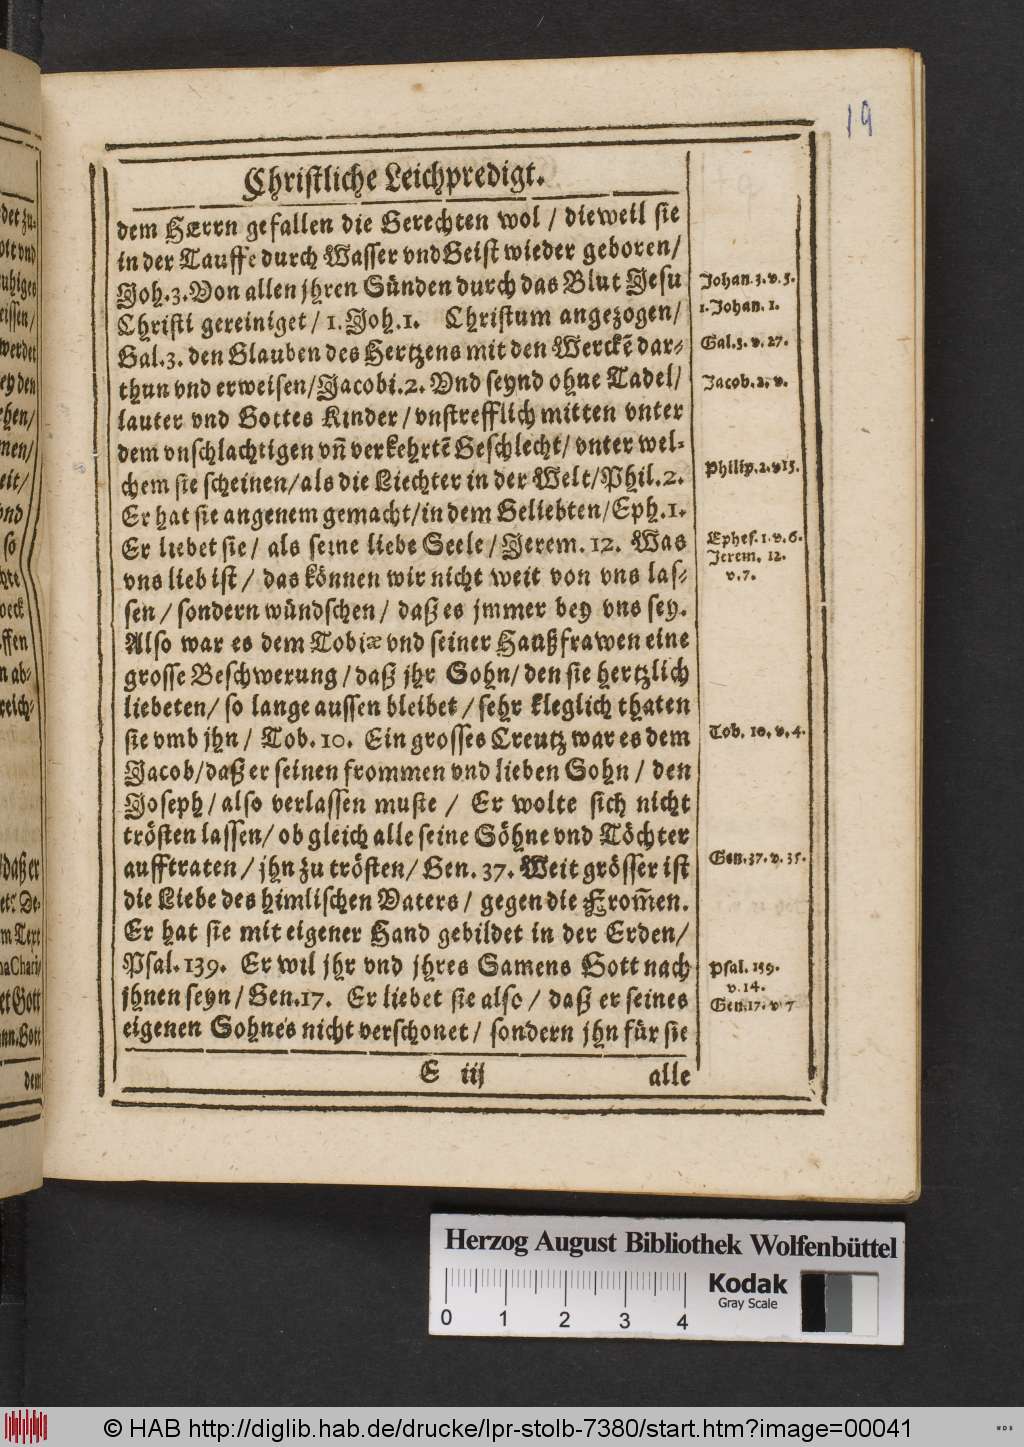 19
Christliche Leichpredigt.
dem HErrn gefallen die Gerechten wol / dieweil sie
in der Tauffe durch Wasser vnd Geist wieder geboren /
Joh. 3. Von allen jhren Sünden durch das Blut Jesu
Christi gereiniget / 1. Joh. 1. Christum angezogen /
Gal. 3. den Glauben des Hertzens mit den Werckẽ dar-
thun vnd erweisen / Jacobi. 2. Vnd seynd ohne Tadel /
lauter vnd Gottes Kinder / vnstrefflich mitten vnter
dem vnschlachtigen vñ verkehrtẽ Geschlecht / vnter wel-
chem sie scheinen / als die Liechter in der Welt / Phil. 2.
Er hat sie angenem gemacht / in dem Geliebten / Eph. 1.
Er liebet sie / als seine liebe Seele / Jerem. 12. Was
vns lieb ist / das können wir nicht weit von vns las-
sen / sondern wündschen / daß es jmmer bey vns sey.
Also war es dem Tobiæ vnd seiner Haußfrawen eine
grosse Beschwerung / daß jhr Sohn / den sie hertzlich
liebeten / so lange aussen bleibet / sehr kleglich thaten
sie vmb jhn / Tob. 10. Ein grosses Creutz war es dem
Jacob / daß er seinen frommen vnd lieben Sohn / den
Joseph / also verlassen muste / Er wolte sich nicht
trösten lassen / ob gleich alle seine Söhne vnd Töchter
aufftraten / jhn zu trösten / Gen. 37. Weit grösser ist
die Liebe des himlischen Vaters / gegen die From̃en.
Er hat sie mit eigener Hand gebildet in der Erden /
Psal. 139. Er wil jhr vnd jhres Samens Gott nach
jhnen seyn / Gen. 17. Er liebet sie also / daß er seines
eigenen Sohnes nicht verschonet / sondern jhn für sie
E iij
alle
Johan. 3. v. 5.
1. Johan. 1.
Gal. 3. v. 27.
Jacob. 2. v.
Philip. 2. v 15.
Ephes. 1. v. 6.
Jerem. 12.
v. 7.
Tob. 10. v. 4.
Gen. 37. v. 35.
Psal. 139.
v. 14.
Gen. 17. v 7
werdet
daß er
m Text
et Gott
dem
Herzog August Bibliothek Wolfenbüttel
0 1 2 3 4
Kodak
Gray Scale
© HAB http://diglib.hab.de/drucke/lpr-stolb-7380/start.htm?image=00041